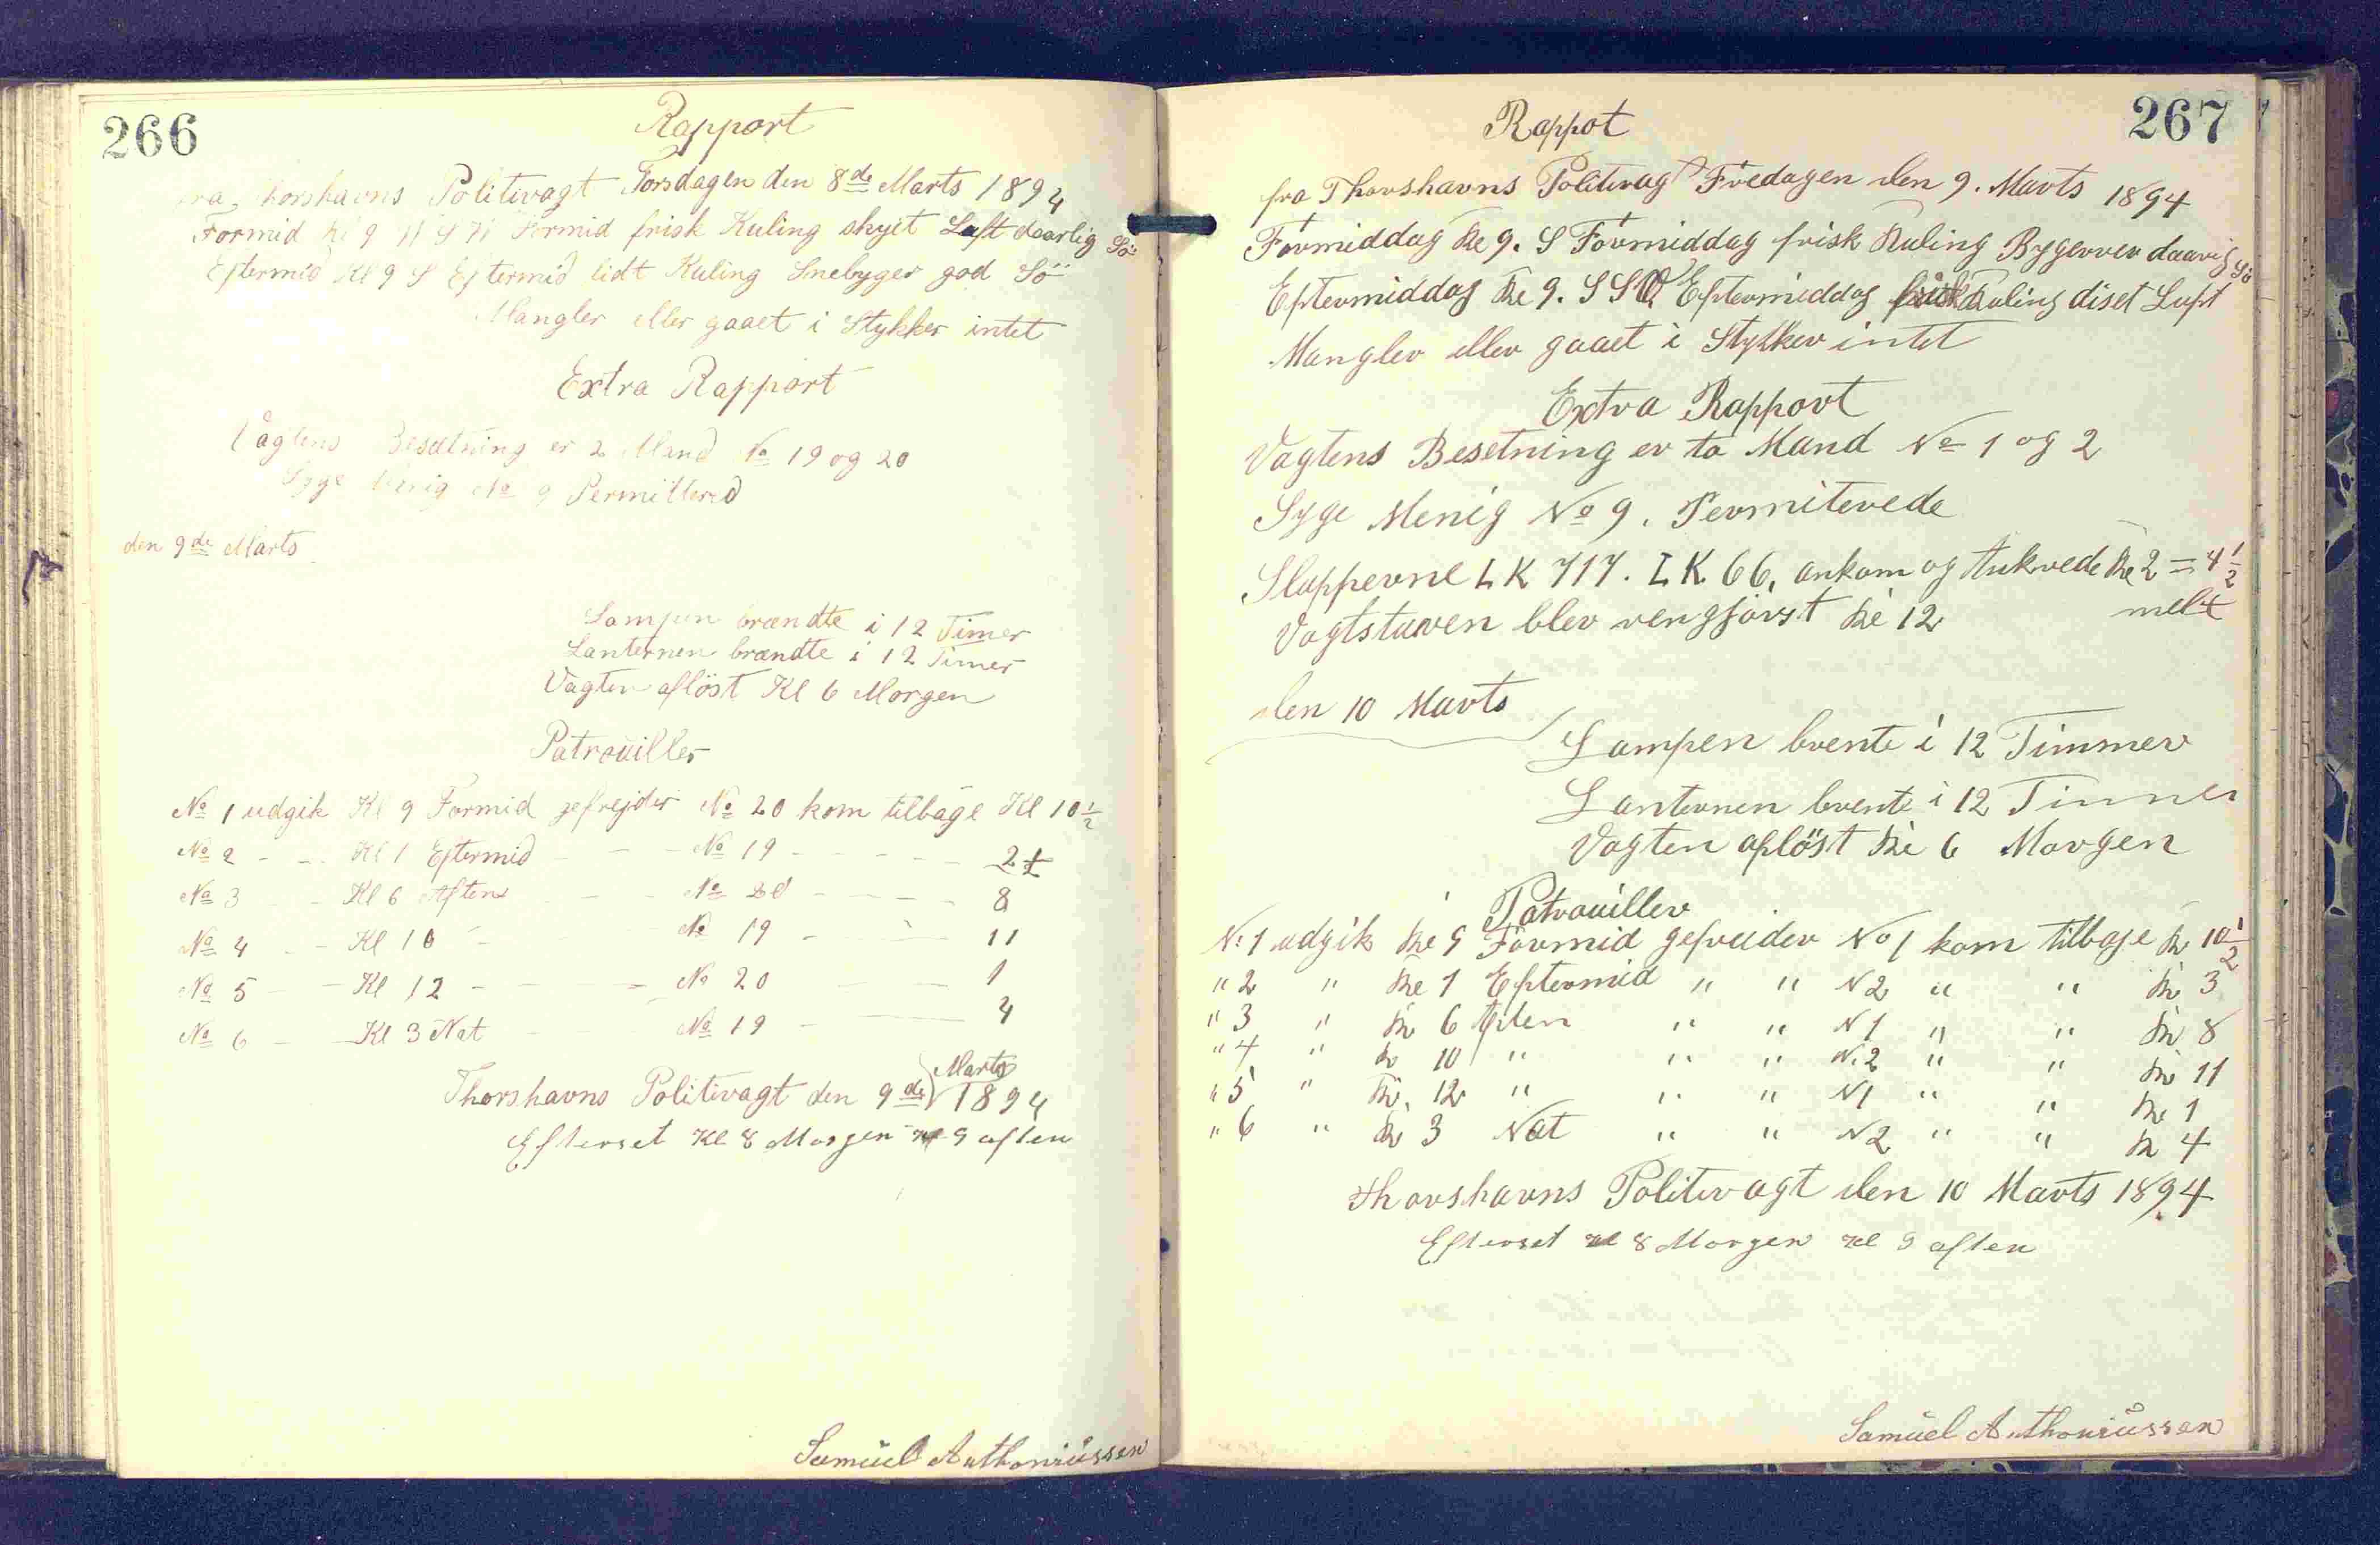 266
Rapport
fra Thorshavns Politivagt Torsdagen den 8de Marts 1894
Formid Kl 9 Formid frisk Kuling skyet Luft daarlig Sö
Eftermid Kl 9 S Eftermid lidt Kuling Snebyger god Sö
Mangler eller gaaet i Stykker intet
Extra Rapport
Vagtens Besætning er 2 Mand No 19 og 20
Syge Menig No 9 Permittered
den 9de Marts
Lampen brændte i 12 Timer
Lanternen brændte i 12 Timer
Vagten aflöst Kl 6 Morgen
Patrouiller
No 1 udgik Kl 9 Formid gefrejder No 20 kom tilbage Kl 10 1/2
No 2 - - Kl 1 Eftermid - - No 19 - - - - -
No 3 - - Kl 6 Aften - - No 20 - - - - 8
No 4 - - Kl 10 - No 19 - - - 11
No 5 - - Kl 12 - - - - No 20 - - 1
No 6 - - Kl 3 Nat - - No 19 - - 4
Thorshavns Politivagt den 9de Marts 1894
Efterset Kl 8 Morgen Kl 9 aften
Samüel Anthoniüssen
267
Rappot
fra Thorshavns Politivagt Fredagen den 9. Marts 1894
Formiddag Kl 9. S Formiddag frisk Kuling Bygerver daarig Sö
Eftermiddag Kl 9. S S O Eftermiddag frisk Kuling diset Luft
Mangler eller gaaet i Stykker intet
Extra Rapport
Vagtens Besetning er to Mand No 1 og 2
Syge Menig No 9. Permiterede
Slapperne LK 717. LK 66, ankom og Ankrede Kl 2 = 4 1/2
melt
Vagtstuven blev rengjörst Kl 12
den 10 Marts
Lampen brente i 12 Timmer
Lanternen brente i 12 Timner
Vagten aflöst Kl 6 Morgen
Patrouiller
No 1 udgik Kl 9 Formid gefreider No 1 kom tilbage Kl 10 1/2
" 2 " Kl 1 Eftermid " " N 2 " " Kl 3
" 3 " Kl 6 Aften " " N 1 " " Kl 8
" 4 " Kl 10 " " " N. 2 " " Kl 11
" 5 " Kl. 12 " " " N 1 " " Kl 1
" 6 " Kl 3 Nat " " N 2 " " Kl 4
Thorshavns Politivagt den 10 Marts 1894
Efterset Kl 8 Morgen Kl 9 aften
Samüel Anthoniüssen